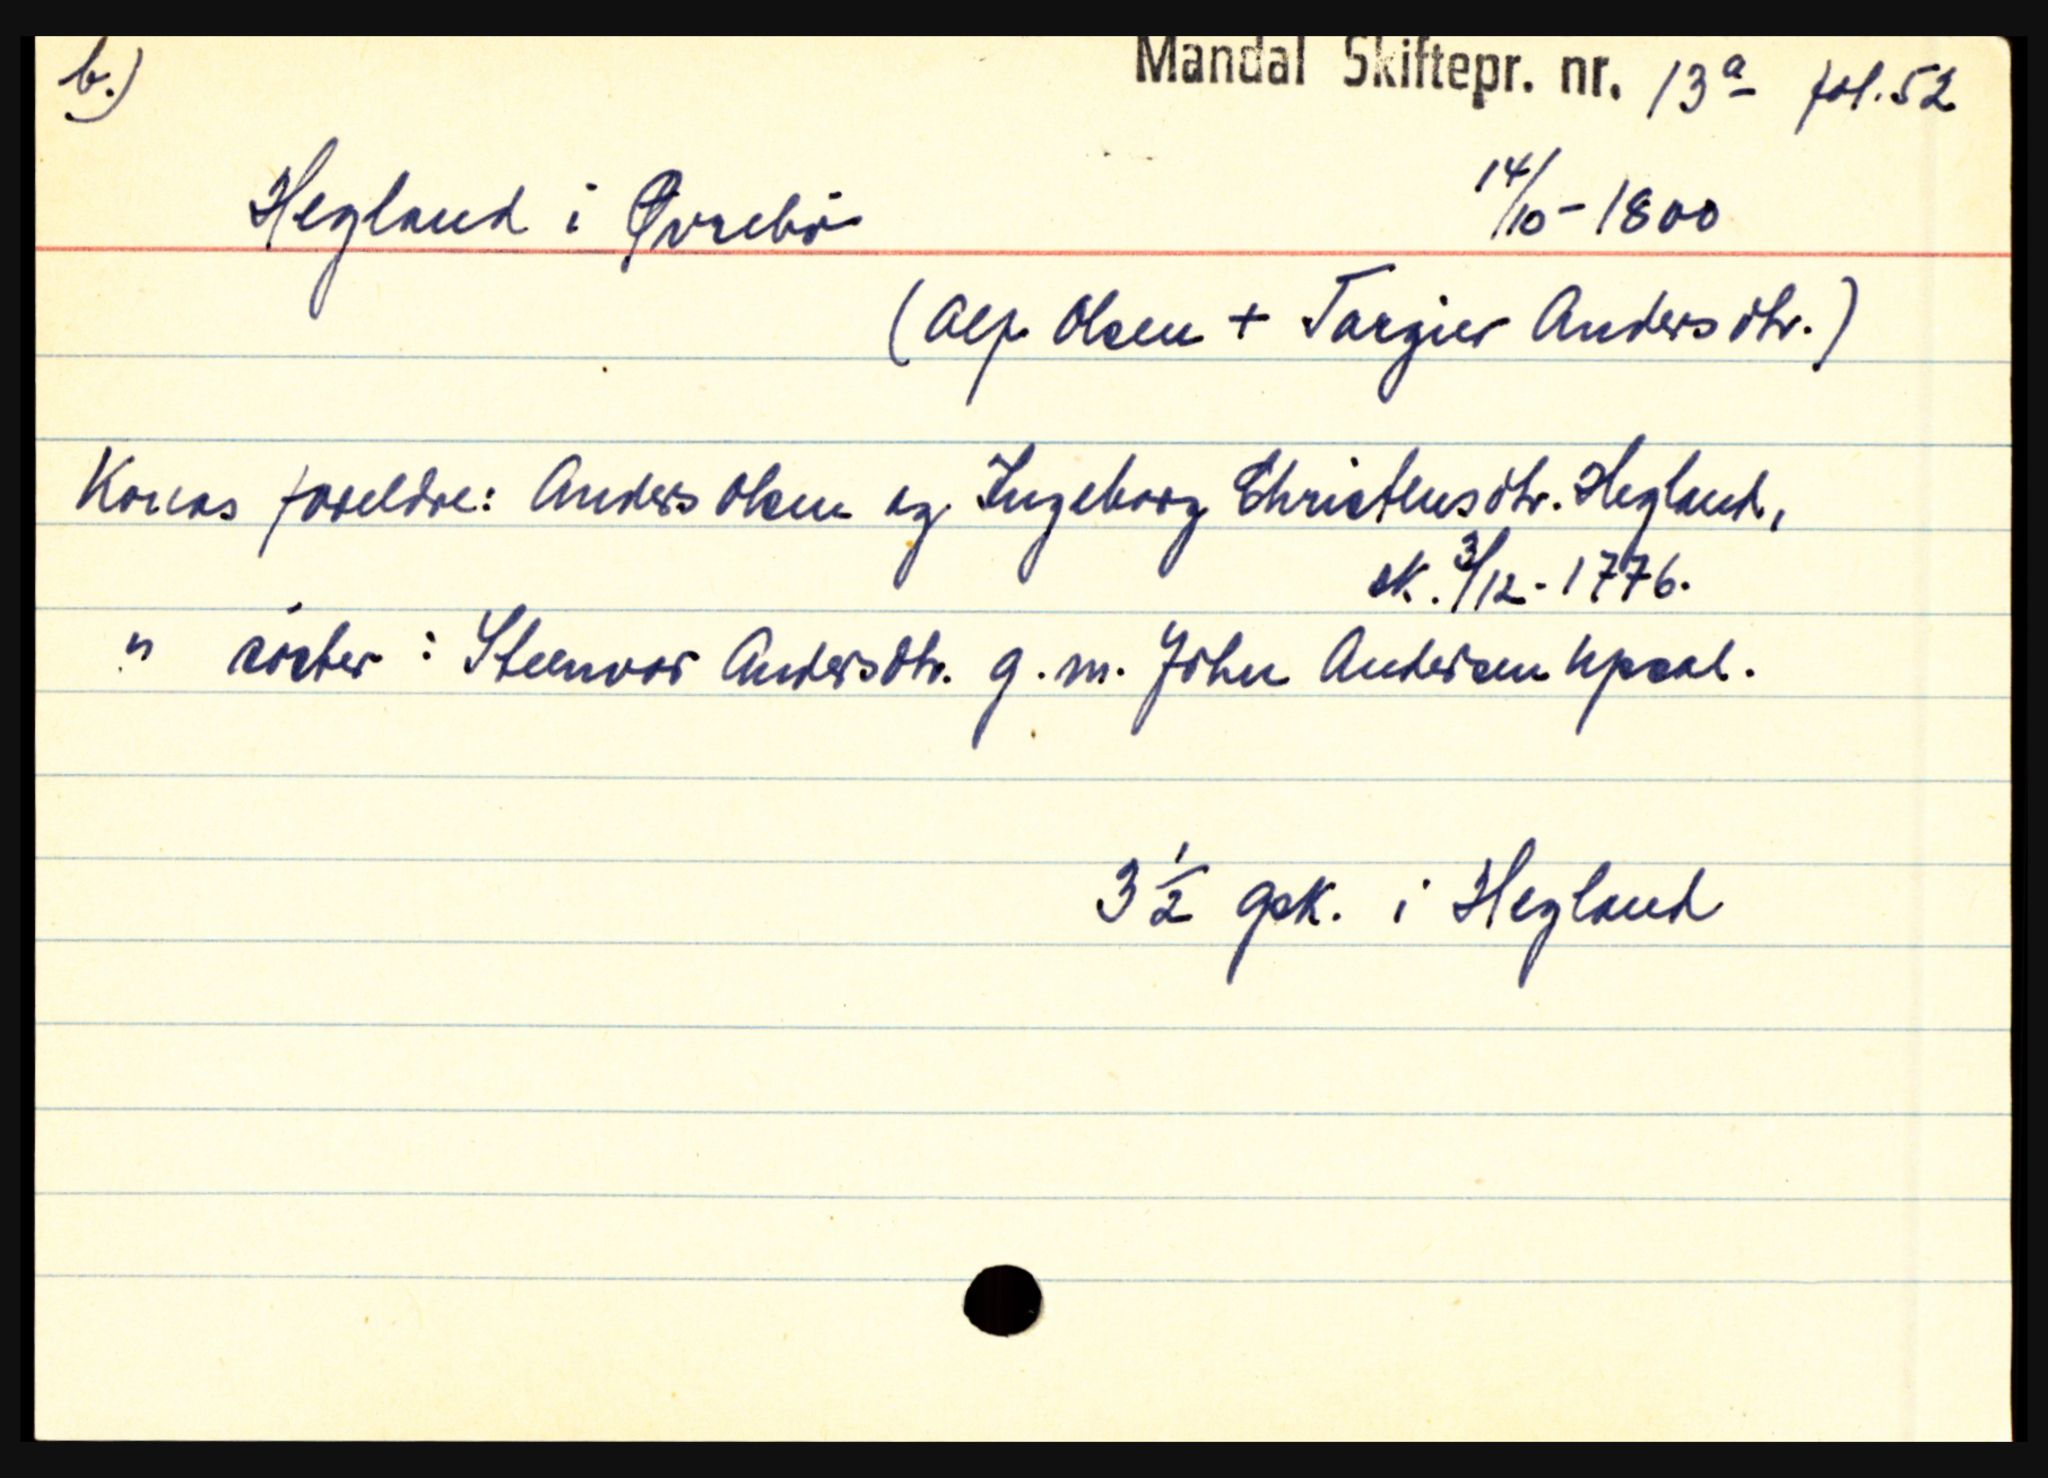 b.)
Mandal Skiftepr. nr. 13a fol. 52
Hegland i Øvrebø 14/10-1800
(Alf Olsen + Targier Andersdtr.)
Konas foreldre: Anders Olsen og Ingeborg Christensdtr. Hegland,
sk. 3/12-1776.
" söster: Steenvor Andersdtr. g.m. John Andersen Upsal.
3 1/2 gsk. i Hegland